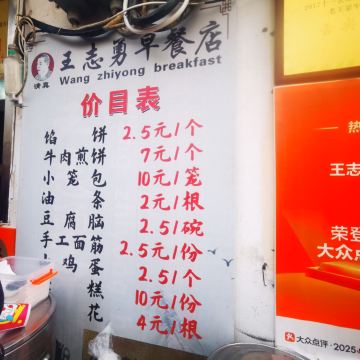 王志勇早餐店
清真
Wang zhiyong breakfast
价目表
馅 饼 2.5元/个
牛肉煎饼 7元/个
小笼包 10元/笼
油条 2元/根
豆腐脑 2.5/碗
手工面筋 2.5元/份
鸡蛋 2.5/个
糕 10元/份
花 4元/根
热
王志
荣登
大众点
大众点评·2025